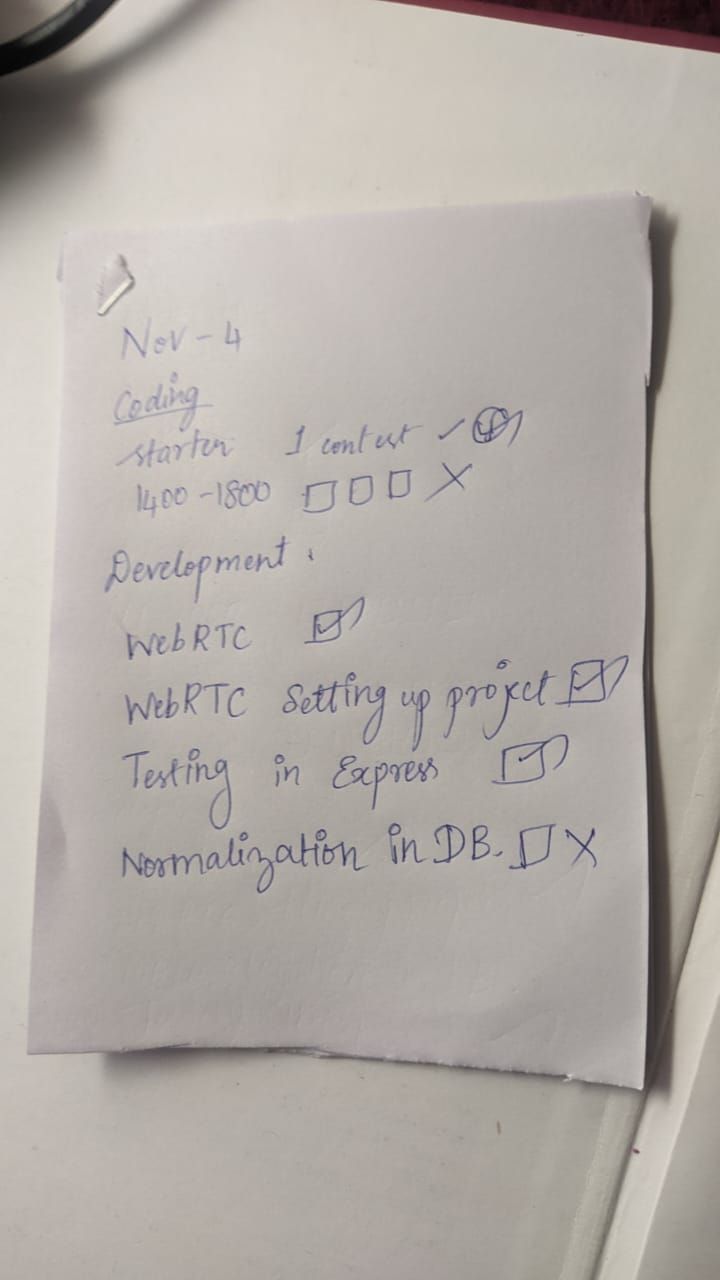 Nov - 4
Coding
starter 1 contest ✓
1400 - 1800 ☐ ☐ ☐ X
Development :
WebRTC ☑
WebRTC Setting up project ☑
Testing in Express ☑
Normalization in DB. ☐ X